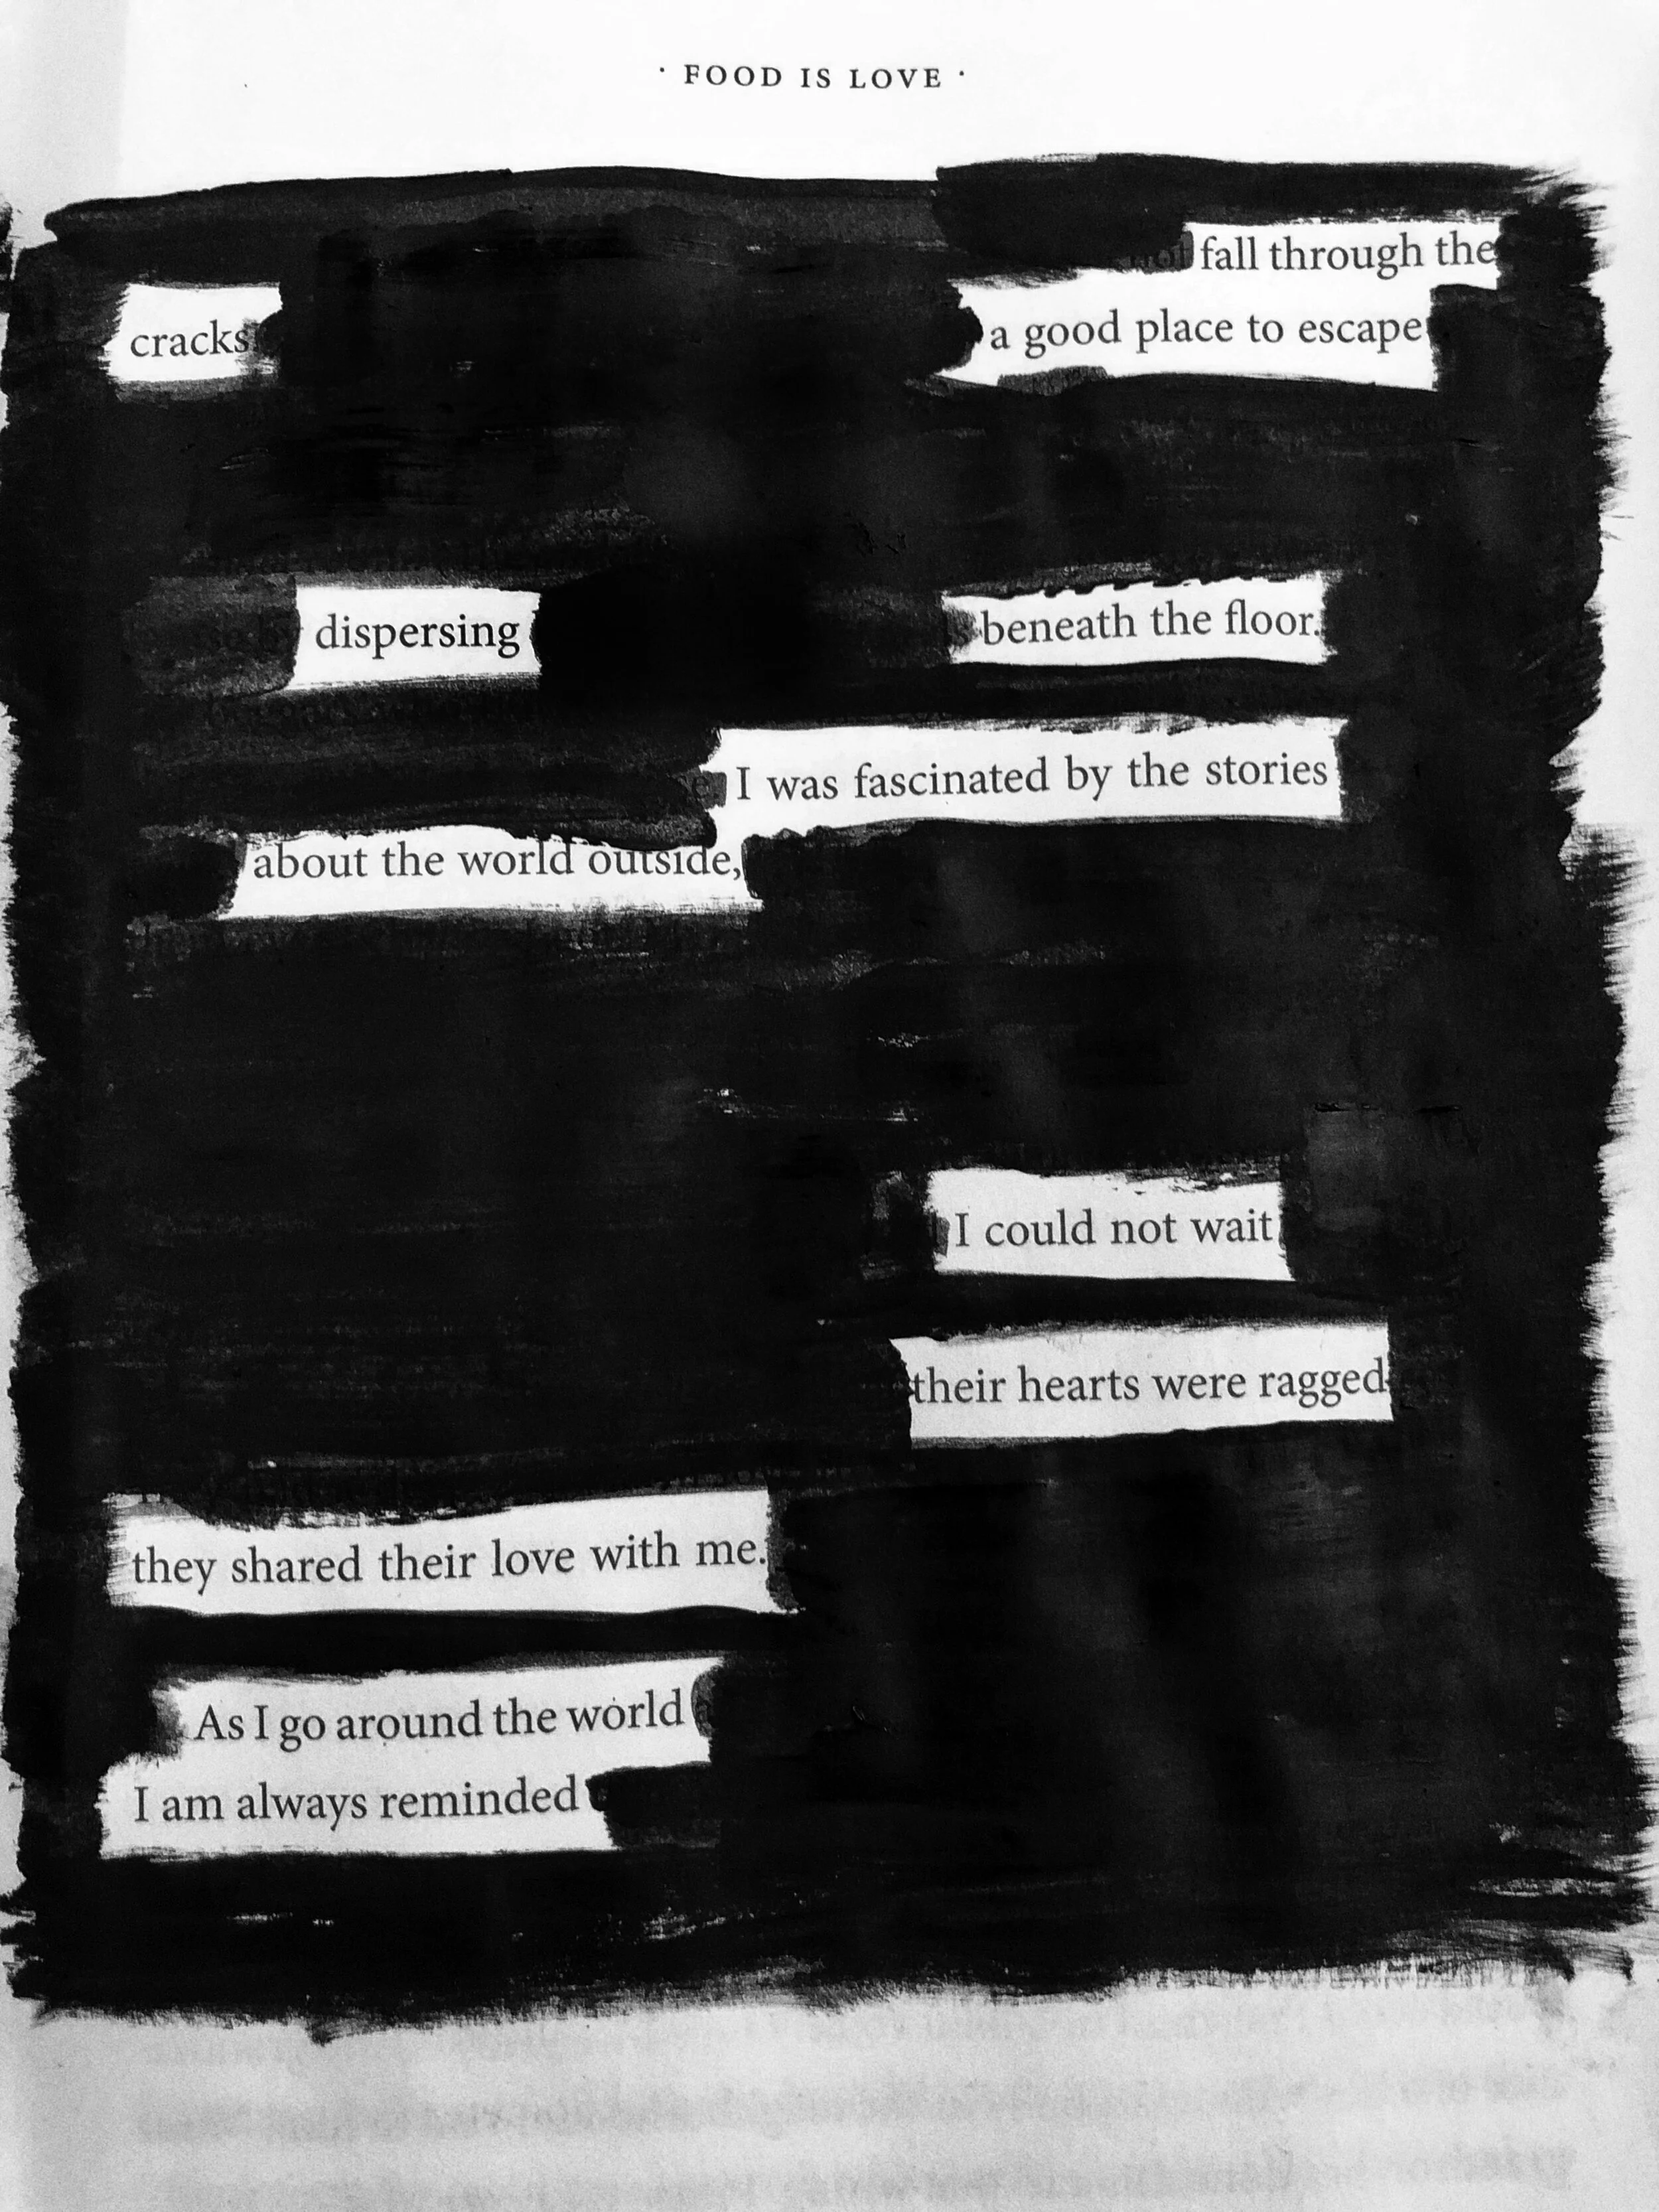 · FOOD IS LOVE ·
fall through the
cracks a good place to escape
dispersing beneath the floor.
I was fascinated by the stories
about the world outside,
I could not wait
their hearts were ragged
they shared their love with me.
As I go around the world
I am always reminded